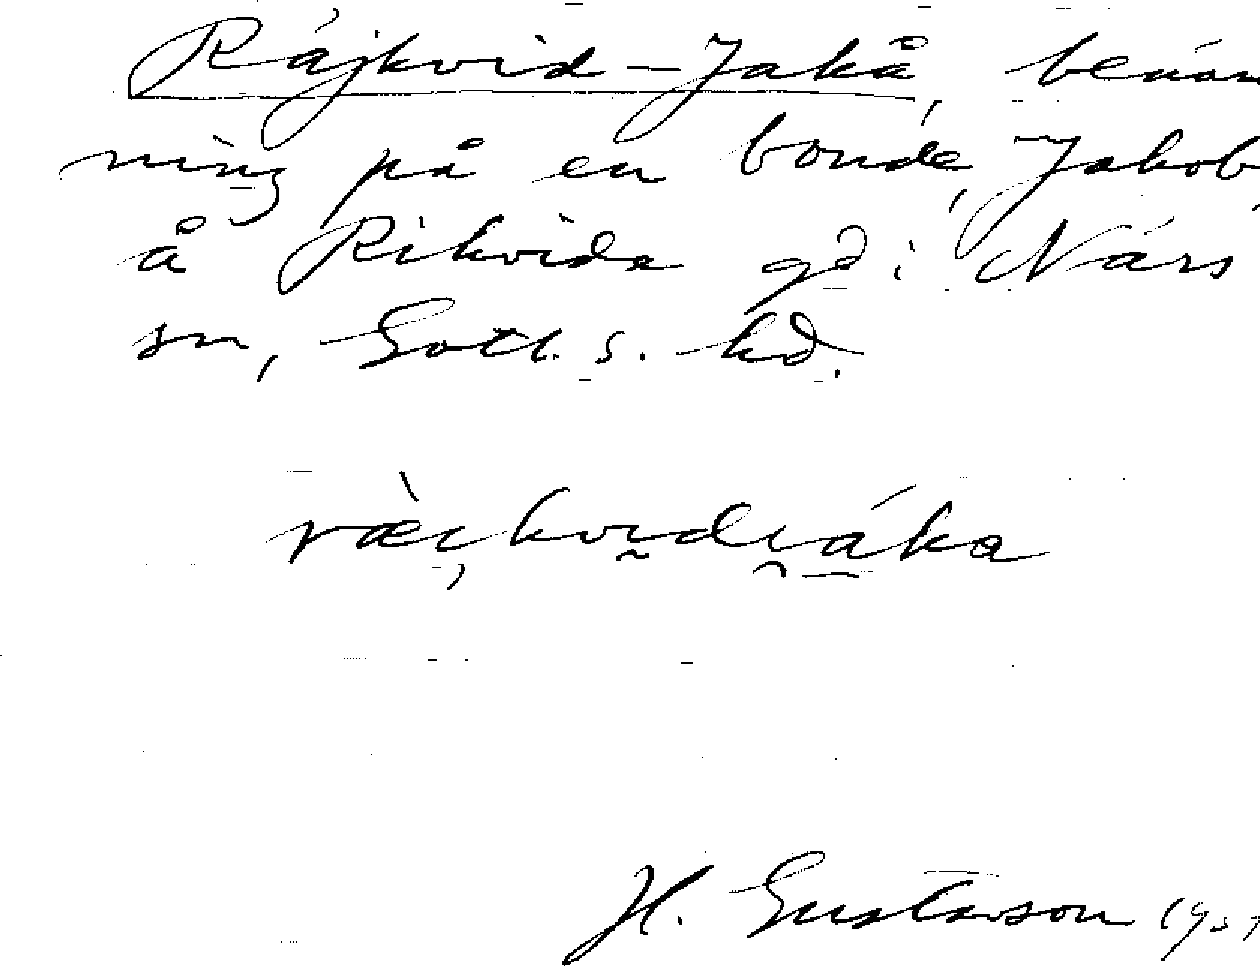 Räjkvid-Jakå, benäm
ning på en bonde, Jakob,
å Rikvide gd i Närs
sn, Gotl. s. hd.
H. Gustavson